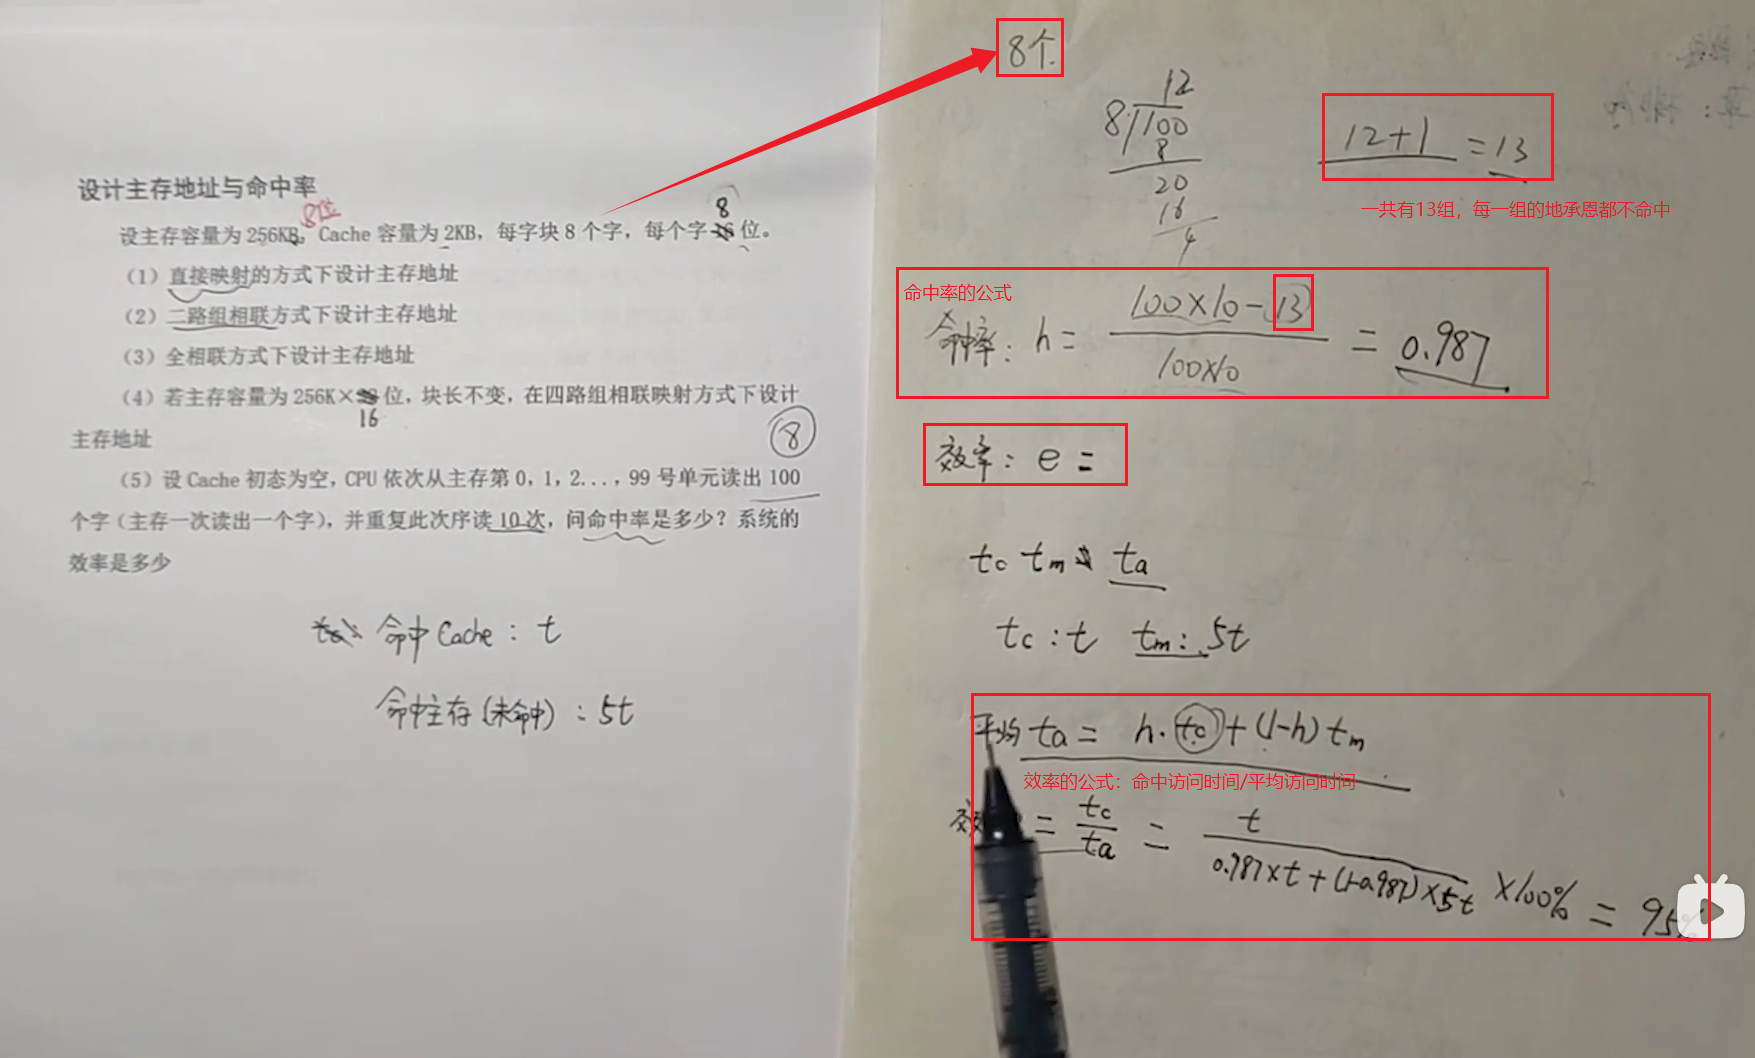 设计主存地址与命中率
8位
8
设主存容量为256KB。Cache 容量为 2KB，每字块 8 个字，每个字 16 位。
（1）直接映射的方式下设计主存地址
（2）二路组相联方式下设计主存地址
（3）全相联方式下设计主存地址
（4）若主存容量为 256K× 位，块长不变，在四路组相联映射方式下设计
16
主存地址
8
（5）设 Cache 初态为空，CPU 依次从主存第 0，1，2...，99 号单元读出 100
个字（主存一次读出一个字），并重复此次序读 10 次，问命中率是多少？系统的
效率是多少
命中Cache：t
命中主存（未命中）：5t
8个
12
8 100
8
20
16
4
12+1 =13
一共有13组，每一组的地承恩都不命中
命中率的公式
命中率：h= 100×10-13 = 0.987
100×10
效率：e =
tc tm ta
tc：t tm：5t
平均 ta = h·tc+(1-h)tm
效率的公式：命中访问时间/平均访问时间
效 = tc = t
ta 0.987×t+(1-0.987)×5t ×100% = 95%